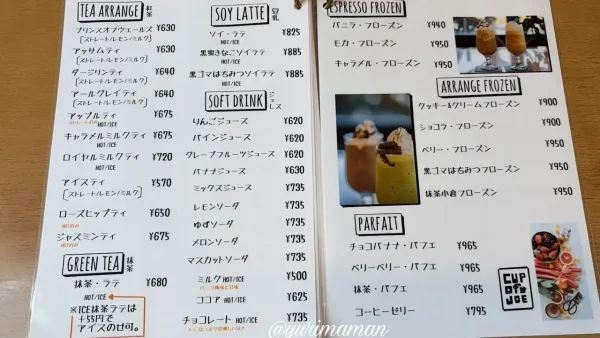 TEA ARRANGE 紅茶
プリンスオブウェールズ ¥630
[ストレート/レモン/ミルク]
アッサムティ ¥630
[ストレート/レモン/ミルク]
ダージリンティ ¥640
[ストレート/レモン/ミルク]
アールグレイティ ¥640
[ストレート/レモン/ミルク]
アップルティ ¥675
ストレートのみ HOT/ICE
キャラメルミルクティ ¥675
HOT/ICE
ロイヤルミルクティ ¥720
HOT/ICE
アイスティ ¥570
[ストレート/レモン/ミルク]
ローズヒップティ ¥650
HOTのみ
ジャスミンティ ¥675
HOTのみ
GREEN TEA 抹茶
抹茶・ラテ ¥680
HOT/ICE
※ICE抹茶ラテは
+55円で
アイスのせ可。
SOY LATTE 豆乳
ソイ・ラテ ¥825
HOT/ICE
黒蜜きなこソイラテ ¥885
HOT/ICE
黒ゴマはちみつソイラテ ¥885
HOT/ICE
SOFT DRINK ジュース
りんごジュース ¥620
パインジュース ¥620
グレープフルーツジュース ¥630
バナナジュース ¥630
ミックスジュース ¥735
レモンソーダ ¥735
ゆずソーダ ¥735
メロンソーダ ¥735
マスカットソーダ ¥735
ミルク HOT/ICE ¥500
ココア HOT/ICE ¥625
チョコレート HOT/ICE ¥725
ESPRESSO FROZEN
バニラ・フローズン ¥940
モカ・フローズン ¥950
キャラメル・フローズン ¥950
ARRANGE FROZEN
クッキー&クリームフローズン ¥900
ショコラ・フローズン ¥900
ベリー・フローズン ¥950
黒ゴマはちみつフローズン ¥950
抹茶小倉フローズン ¥950
PARFAIT
チョコバナナ・パフェ ¥965
ベリーベリー・パフェ ¥965
抹茶・パフェ ¥965
コーヒーゼリー ¥795
CUP
OF
JOE
@yurimaman